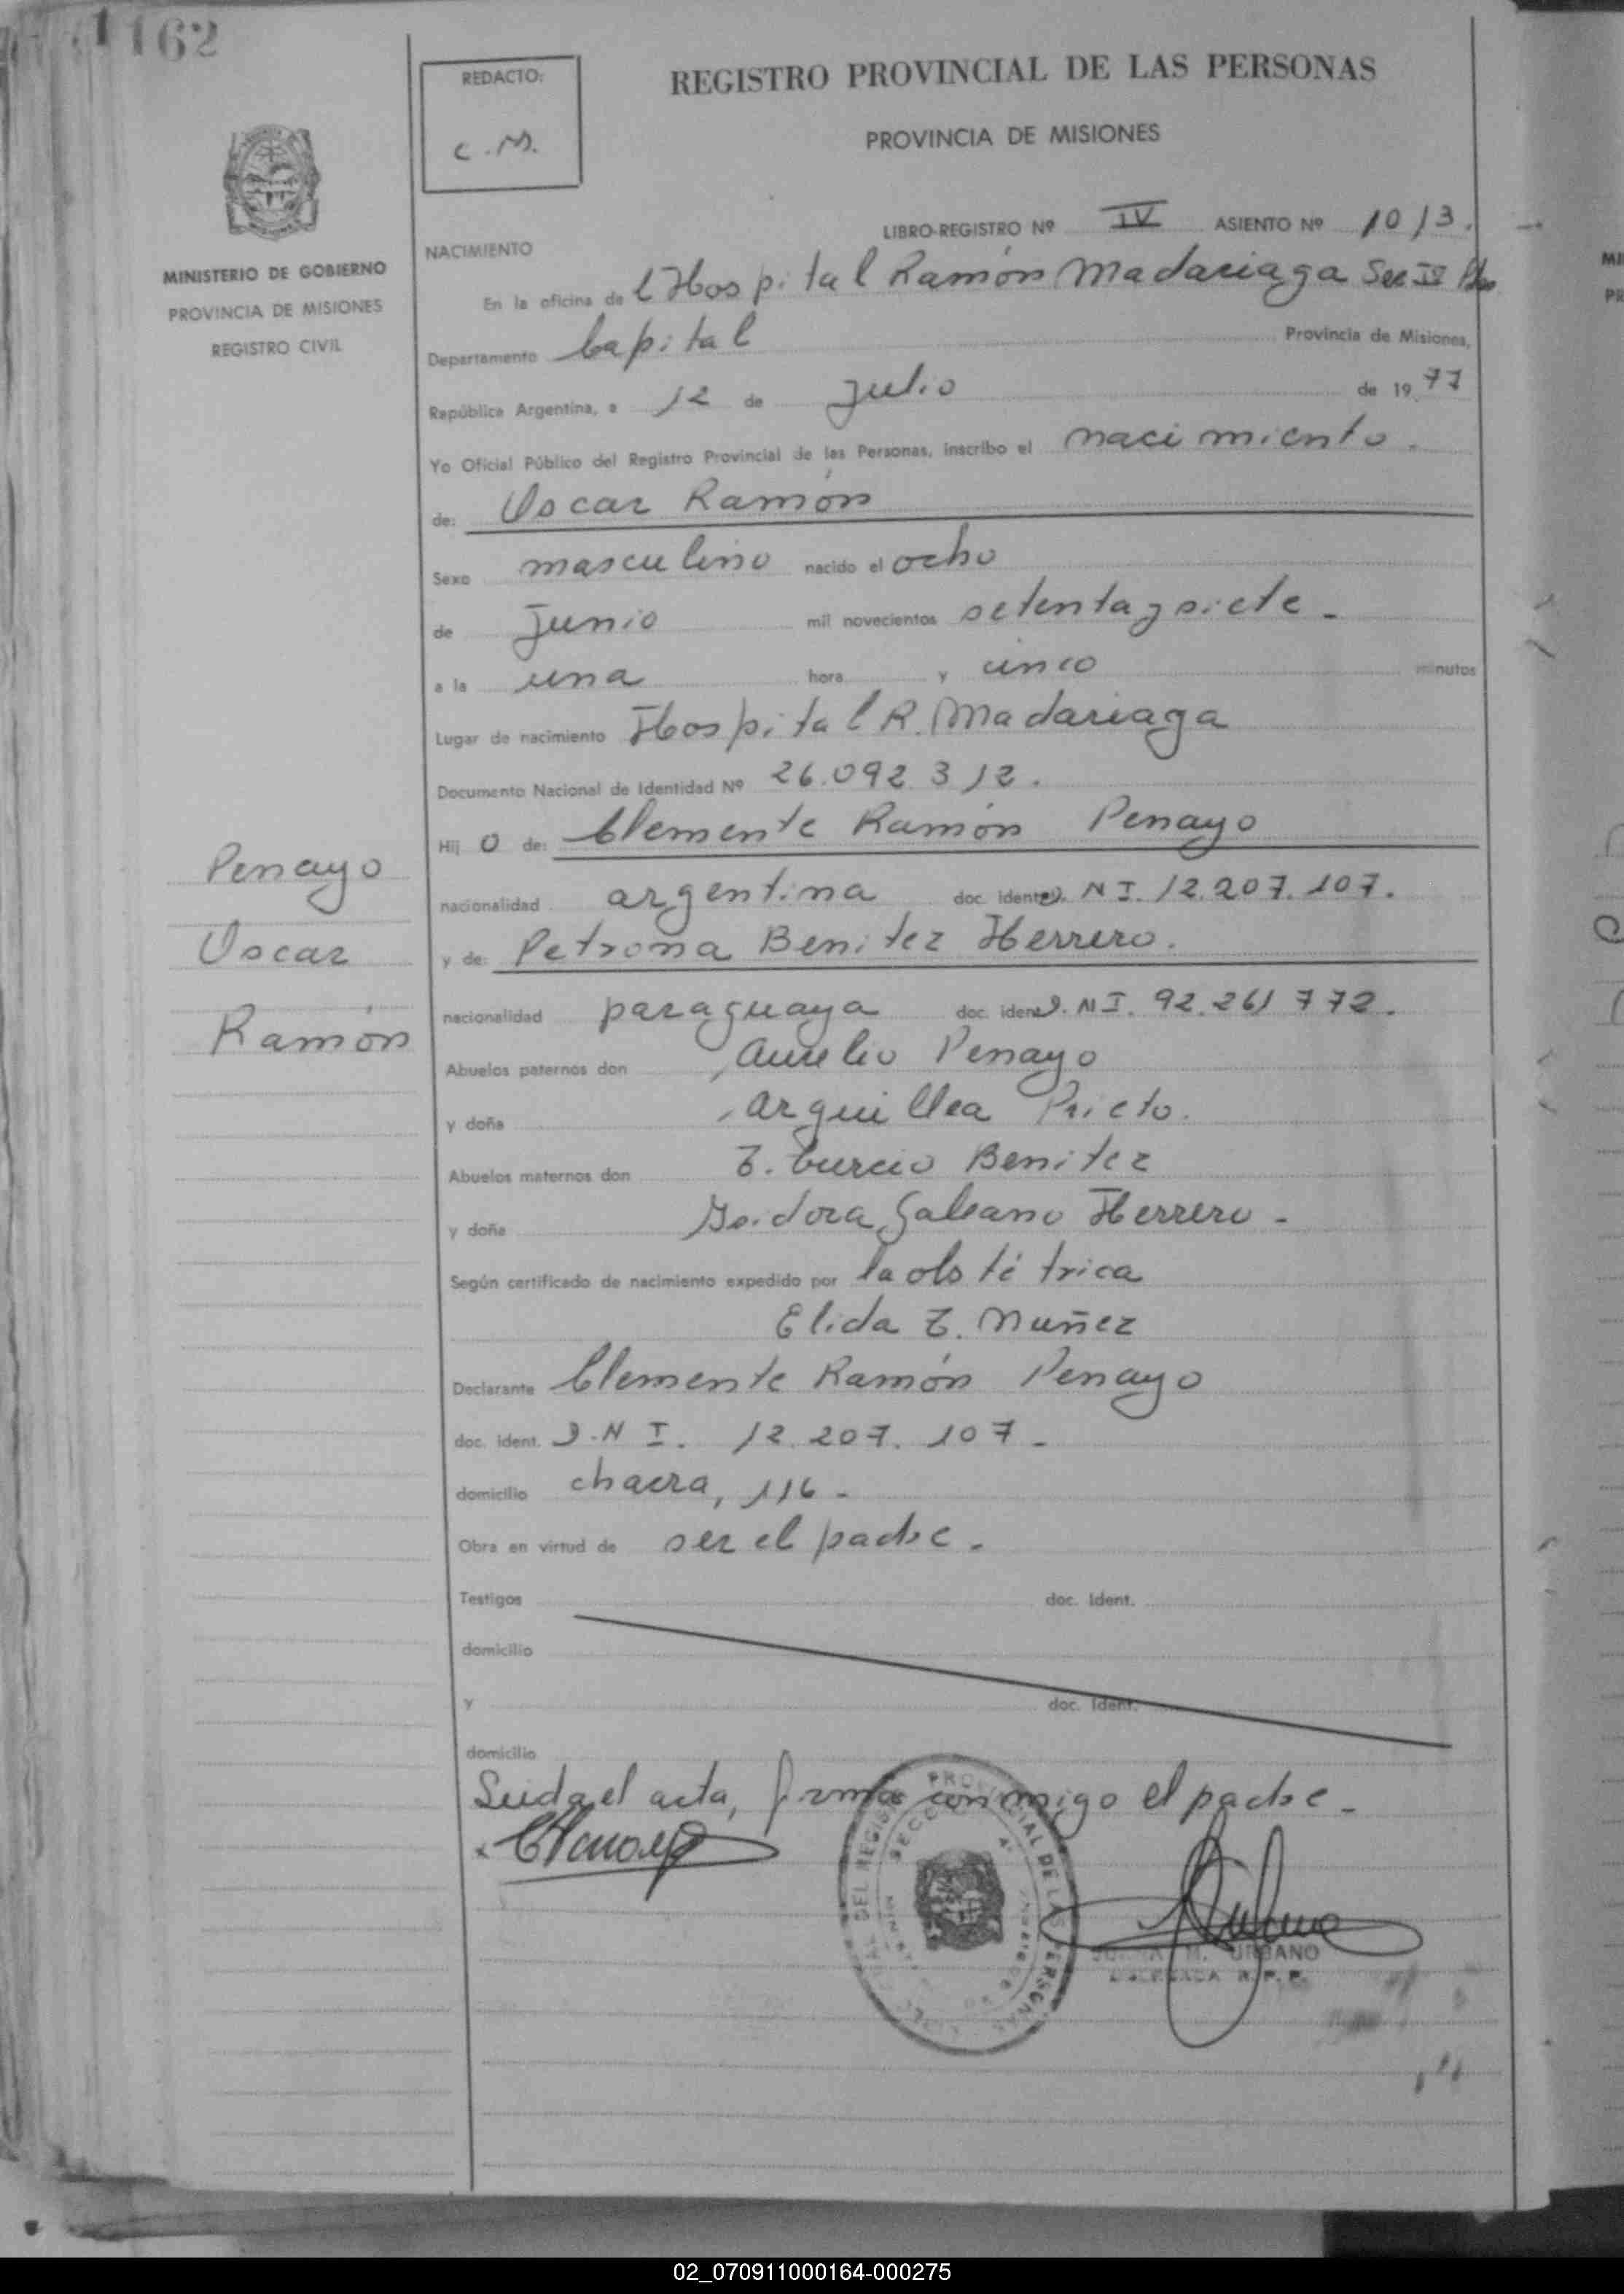 1162
REDACTO:
C.M.
REGISTRO PROVINCIAL DE LAS PERSONAS
PROVINCIA DE MISIONES
MINISTERIO DE GOBIERNO
PROVINCIA DE MISIONES
REGISTRO CIVIL
LIBRO-REGISTRO Nº IV ASIENTO Nº 1013.
NACIMIENTO
En la oficina del Hospital Ramón Madariaga Sec IV
Departamento Capital Provincia de Misiones,
República Argentina, a 12 de Julio de 1977
Yo Oficial Público del Registro Provincial de las Personas, inscribo el nacimiento.
de: Oscar Ramón
Sexo masculino nacido el ocho
de Junio mil novecientos setenta y siete -
a la una hora y cinco minutos
Lugar de nacimiento Hospital R. Madariaga
Documento Nacional de Identidad Nº 26.092.312.
Hij o de: Clemente Ramón Penayo
nacionalidad argentina doc. ident D.N I. 12.207.107.
y de: Petrona Benitez Herrero.
nacionalidad paraguaya doc. ident D.N I. 92.261 772.
Abuelos paternos don Aurelio Penayo
y doña Arquillea Prieto.
Abuelos maternos don Tiburcio Benitez
y doña Isidora Galeano Herrero -
Según certificado de nacimiento expedido por la obstétrica
Elida T. Nuñez
Declarante Clemente Ramón Penayo
doc. ident. D.N I. 12.207.107 -
domicilio chacra, 116 -
Obra en virtud de ser el padre -
Testigos doc. Ident.
domicilio
y doc. Ident.
domicilio
Leida el acta, firma conmigo el padre -
Penayo
Oscar
Ramón
M. URBANO
DELEGADA R.P.P.
02_070911000164-000275